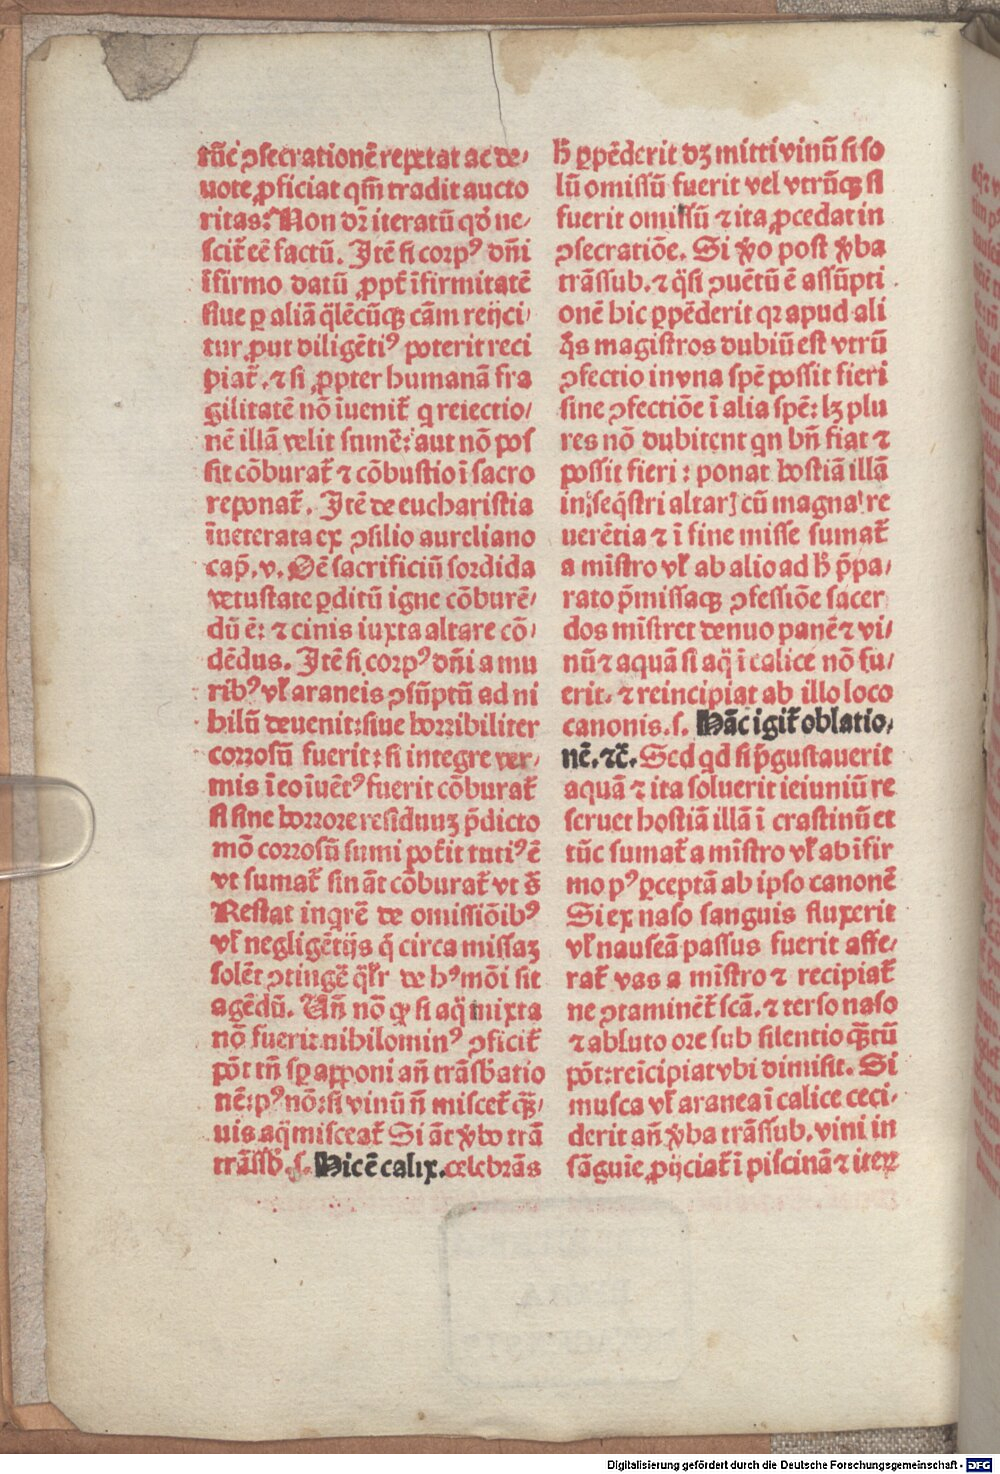 tūc ꝯsecrationē repetat ac de⸗
uote ꝓficiat qm̄ tradit aucto
ritas: Non dr̄ iteratū qđ ne⸗
scit̄ eē factū. Itē si corpꝰ dn̄i
īfirmo datū ꝓpt̄ īfirmitatē
siue ꝑ aliā q̄lēcūqꝫ cām reijci⸗
tur ꝓut diligētiꝰ poterit reci
piat̄. ⁊ si ꝓpter humanā fra
gilitatē nō īuenit̄ q reiectio⸗
nē illā velit sumē: aut nō pos
sit cōburat̄ ⁊ cōbustio ī sacro
reponat̄. Itē de eucharistia
īueterata ex ꝯsilio aureliano
cap̄. v. Oē sacrificiū sordida
vetustate ꝑditū igne cōburē⸗
dū ē: ⁊ cinis iuxta altare cō⸗
dēdus. Itē si corpꝰ dn̄i a mu
ribꝰ vl̄ araneis ꝯsūptū ad ni
hilū deuenit: siue horribiliter
corrosū fuerit: si integre ver⸗
mis ī eo īuētꝰ fuerit cōburat̄
si sine horrore residuuꝫ p̄dicto
mō corrosū sumi pot̄it tutiꝰ ē
vt sumat̄ sin āt cōburat̄ vt s̄
Restat inqrē de omissiōibꝰ
vl̄ negligētijs q̄ circa missaꝫ
solēt ꝯtingē q̄lr̄ de hꝰmōi sit
agēdū. Un̄ nō ꝙ si aq̄ mixta
nō fuerit nibilominꝰ ꝯficit̄
pōt tn̄ sꝑ apponi an̄ trāsb̄atio
nē: pꝰ nō: si vinū n̄ miscet̄ q̄ꝫ⸗
uis aq̄ misceat̄ Si āt v̓bo trā
trāssb̄. s. Hic ē calix. celebrās
h̄ ꝑpēderit dꝫ mitti vinū si so
lū omissū fuerit vel vtrūqꝫ si
fuerit omissū ⁊ ita ꝓcedat in
ꝯsecratiōe. Si v̓o post v̓ba
trāssub. ⁊ q̄si ꝯuētū ē assūpti
onē hic ꝑpēderit qꝛ apud ali
q̄s magistros dubiū est vtrū
ꝯfectio in vna spē possit fieri
sine ꝯfectiōe ī alia spē: lꝫ plu
res nō dubitent qn bn̄ fiat ⁊
possit fieri: ponat hostiā illā
in seq̄stri altarꝭ cū magna re
uerētia ⁊ ī fine misse sumat̄
a mīstro vl̄ ab alio ad h̄ p̄pa⸗
rato p̄missaqꝫ ꝯfessiōe sacer
dos mīstret denuo panē ⁊ vi⸗
nū ⁊ aquā si aq̄ ī calice nō fu⸗
erit. ⁊ reincipiat ab illo loco
canonis. s. Hāc igit̄ oblatio⸗
nē. ⁊c̄. Sed qd si p̄gustauerit
aquā ⁊ ita soluerit ieiuniū re
seruet hostiā illā ī crastinū et
tūc sumat̄ a mīstro vl̄ ab īfir
mo pꝰ ꝑceptā ab ipso canonē
Si ex naso sanguis fluxerit
vl̄ nauseā passus fuerit affe⸗
rat̄ vas a mīstro ⁊ recipiat̄
ne ꝯtaminēt̄ scā. ⁊ terso naso
⁊ abluto ore sub silentio q̄ꝫtū
pōt: reīcipiat vbi dimisit. Si
musca vl̄ aranea ī calice ceci⸗
derit an̄ v̓ba trāssub. vini in
sāguīe ꝓijciat̄ ī piscinā ⁊ iteꝝ
Digitalisierung gefördert durch die Deutsche Forschungsgemeinschaft - DFG